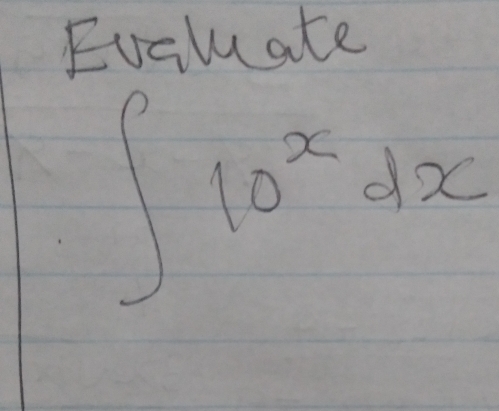 Evaluate
∫ 10^x dx